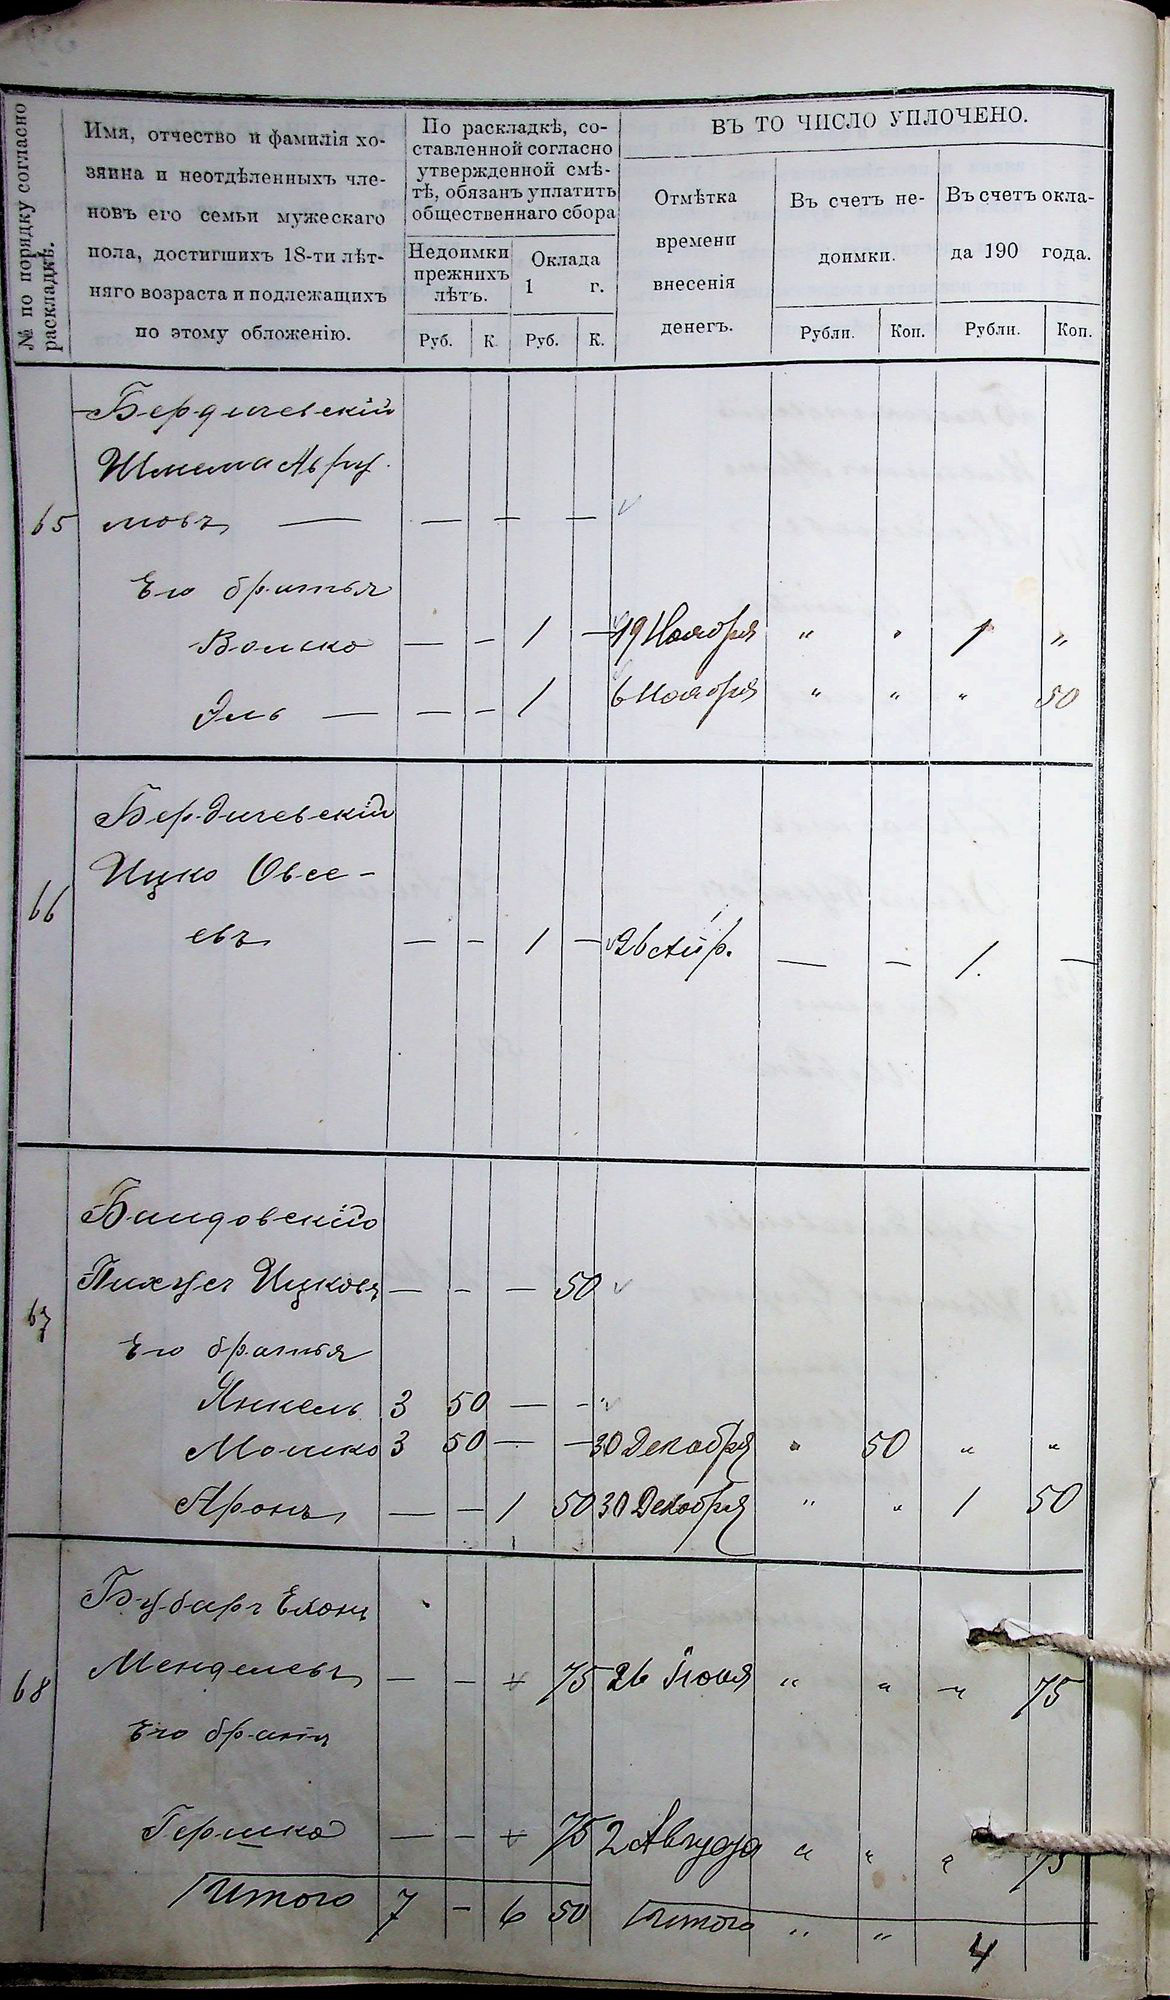 № по порядку согласно раскладкѣ.
Имя, отчество и фамилія хо-
зяина и неотдѣленныхъ чле-
новъ его семьи мужескаго
пола, достигшихъ 18-ти лѣт-
няго возраста и подлежащихъ
по этому обложенію.
По раскладкѣ, со-
ставленной согласно
утвержденной смѣ-
тѣ, обязанъ уплатить
общественнаго сбора
Недоимки
прежнихъ
лѣтъ.
Оклада
1 г.
Руб. К. Руб. К.
ВЪ ТО ЧИСЛО УПЛОЧЕНО.
Отмѣтка
времени
внесенія
денегъ.
Въ счетъ не-
доимки.
Въ счетъ окла-
да 190 года.
Рубли. Коп. Рубли. Коп.
Бердичевскій
Шмема Авру-
65 мовъ — — — —
Его братья
Волько — — 1 — 19 Ноября " " 1 "
Эль — — — 1 6 Ноября " " " 50
Бердичевскій
66 Ицко Овсе-
евъ — — 1 — 26 Апр. — — 1. —
Пинхусъ Ицковъ — — — 50
67 Его братья
Янкель 3 50 — - "
Мошко 3 50 — — 30 Декабря " 50 " "
Аронъ — — 1 50 30 Декабря " " 1 50
Менделевъ — — + 75 26 Іюня " " " 75
68 Его братъ
Гершко — — + 75 2 Августа " " " 75
Итого 7 - 6 50 Итого " " 4